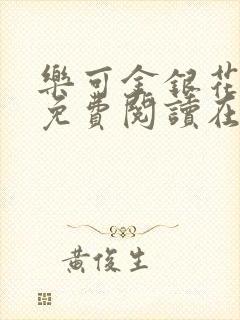 樂可金銀花
免費閱讀在
黃俊生